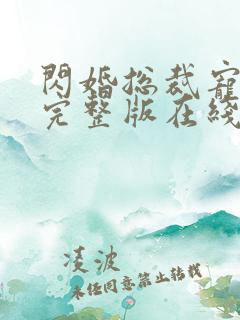 閃婚总裁寵
完整版在綫
凌波
未经同意禁止转载